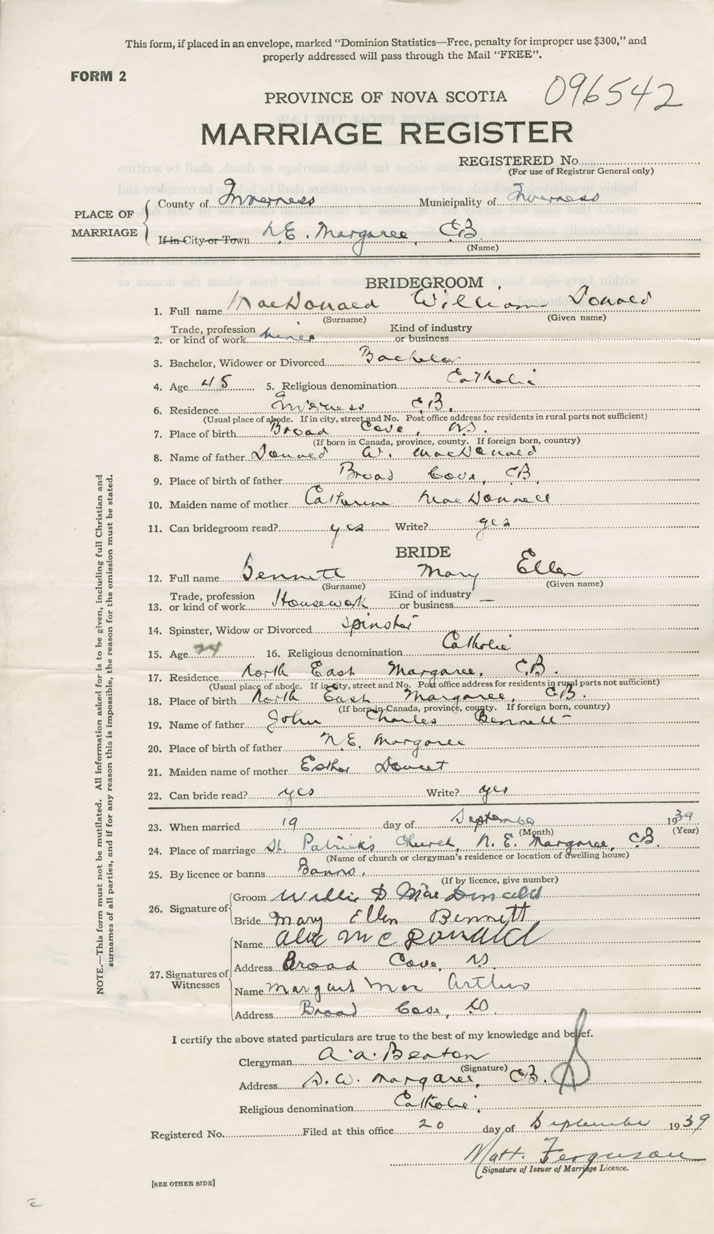 This form, if placed in an envelope, marked “Dominion Statistics—Free, penalty for improper use $300,” and
properly addressed will pass through the Mail “FREE”.
FORM 2
PROVINCE OF NOVA SCOTIA 096542
MARRIAGE REGISTER
REGISTERED No.
(For use of Registrar General only)
PLACE OF MARRIAGE
County of Inverness Municipality of Inverness
If in City or Town N.E. Margaree, C.B.
(Name)
BRIDEGROOM
1. Full name MacDonald William Donald
(Surname) (Given name)
2. Trade, profession or kind of work miner Kind of industry or business
3. Bachelor, Widower or Divorced Bachelor
4. Age 45 5. Religious denomination Catholic
6. Residence Inverness C.B.
(Usual place of abode. If in city, street and No. Post office address for residents in rural parts not sufficient)
7. Place of birth Broad Cove, N.S.
(If born in Canada, province, county. If foreign born, country)
8. Name of father Donald W. MacDonald
9. Place of birth of father Broad Cove, C.B.
10. Maiden name of mother Catherine MacDonnell
11. Can bridegroom read? yes Write? yes
BRIDE
12. Full name Bennett Mary Ellen
(Surname) (Given name)
13. Trade, profession or kind of work Housework Kind of industry or business —
14. Spinster, Widow or Divorced Spinster
15. Age 16. Religious denomination Catholic
17. Residence North East Margaree, C.B.
(Usual place of abode. If in city, street and No. Post office address for residents in rural parts not sufficient)
18. Place of birth North East Margaree, C.B.
(If born in Canada, province, county. If foreign born, country)
19. Name of father John Charles Bennett
20. Place of birth of father N.E. Margaree
21. Maiden name of mother Esther Doucet
22. Can bride read? yes Write? yes
23. When married 19 day of September 1939
(Month) (Year)
24. Place of marriage St. Patrick's Church, N.E. Margaree, C.B.
(Name of church or clergyman's residence or location of dwelling house)
25. By licence or banns Banns.
(If by licence, give number)
26. Signature of
Groom Willie D MacDonald
Bride Mary Ellen Bennett
27. Signatures of Witnesses
Name Alex McDonald
Address Broad Cove, N.S.
Name Margaret Mac Arthur
Address Broad Cove, N.S.
I certify the above stated particulars are true to the best of my knowledge and belief.
Clergyman A. A. Beaton
(Signature)
Address S.W. Margaree, C.B.
Religious denomination Catholic.
Registered No. Filed at this office 20 day of September 1939
Matt. Ferguson
Signature of Issuer of Marriage Licence.
[SEE OTHER SIDE]
NOTE.—This form must not be mutilated. All Information asked for is to be given, including full Christian and
surnames of all parties, and if for any reason this is impossible, the reason for the omission must be stated.